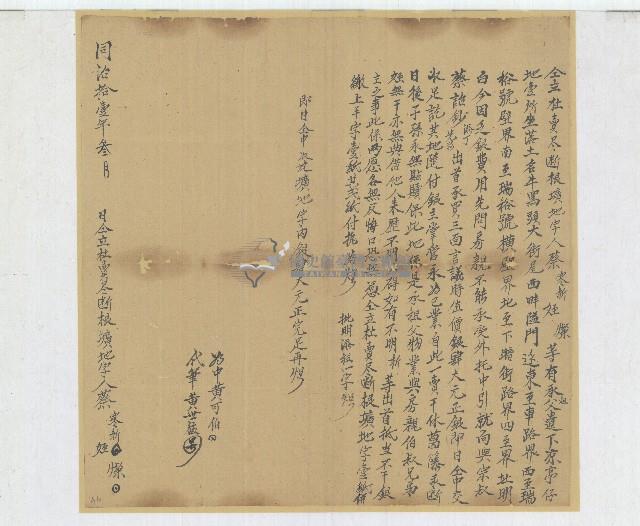 仝立杜賣尽断根壙地字人蔡寒新姪爍等有承父遺下凉亭仔
地壹所坐落土名牛罵頭大街尾西畔隘門边東至車路界西至瑞
裕號壁界南至瑞裕號横壁界北至下街路界四至界址明
白今因乏銀費用先問房親不能承受外托中引就向與宗叔
蔡詒鈔出首承買三面言議時值價銀肆大元正銀即日仝中交
收足訖其地隨付銀主掌管永為己業自此一賣千休萬藤永断
日後子孫永無點贖保此地係是承祖父物業與房親伯叔兄弟
姪無干亦無與借他人來歷不明等如有不明新等出首抵當不干銀
主之事此係兩愿各無反悔口恐無憑仝立杜賣尽断根壙地字壹紙併
繳上手字壹紙共貳紙付执為炤 批明添祖一字炤
即日仝中收过壙地字內銀肆大元正完足再炤
為中黄可伯
代筆黄世
同治拾壹年叁月 日仝立杜賣尽断根壙地字人蔡寒新姪爍
臺灣史
TAIWAN